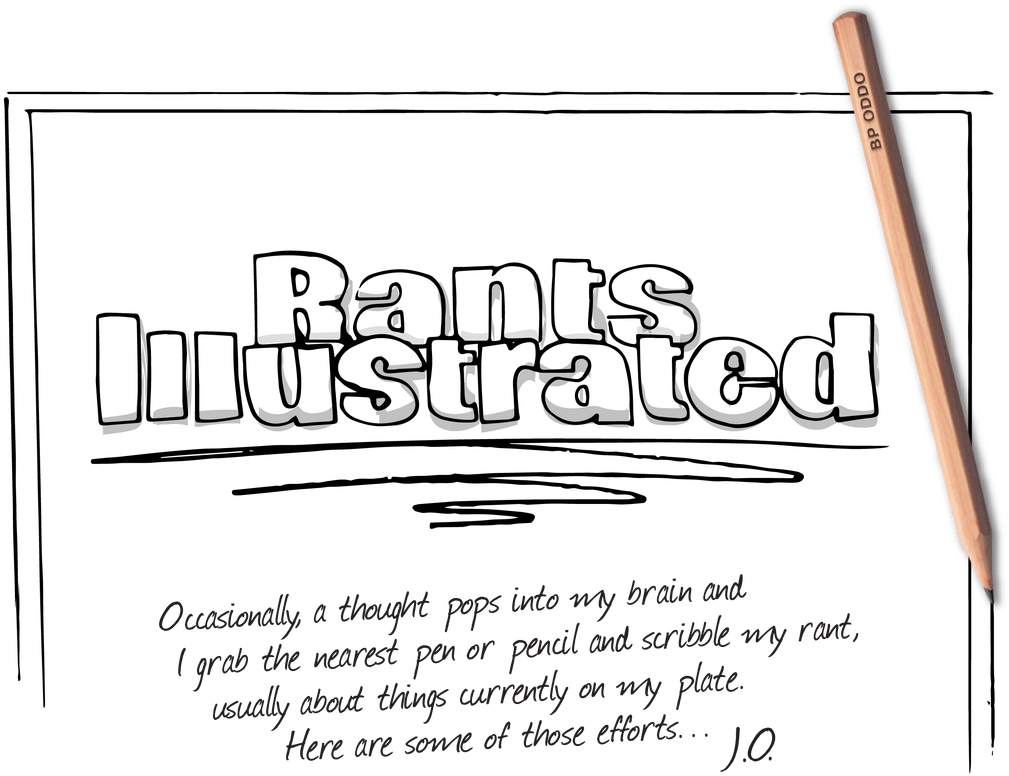 BP ODDO
Rants
Illustrated
Occasionally, a thought pops into my brain and
I grab the nearest pen or pencil and scribble my rant,
usually about things currently on my plate.
Here are some of those efforts... J.O.